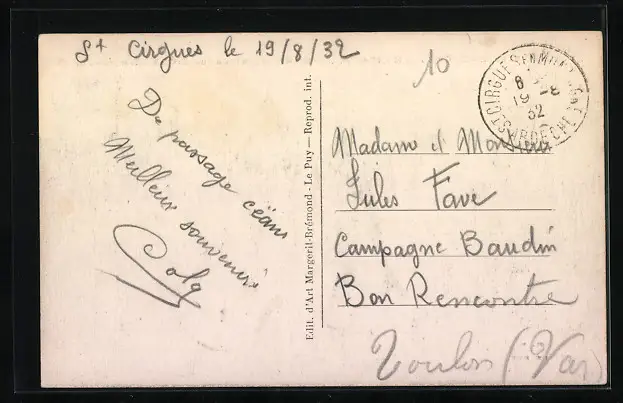 St Cirgues le 19/8/32
10
De passage céans
Meilleur souvenir
Edit. d'Art Margerit-Brémond - Le Puy — Reprod. int.
ST CIRGUES EN MONTAGNE
ARDECHE
19 -8
32
Madame et Monsieur
Jules Favé
Campagne Baudin
Bon Rencontre
Toulon (Var)